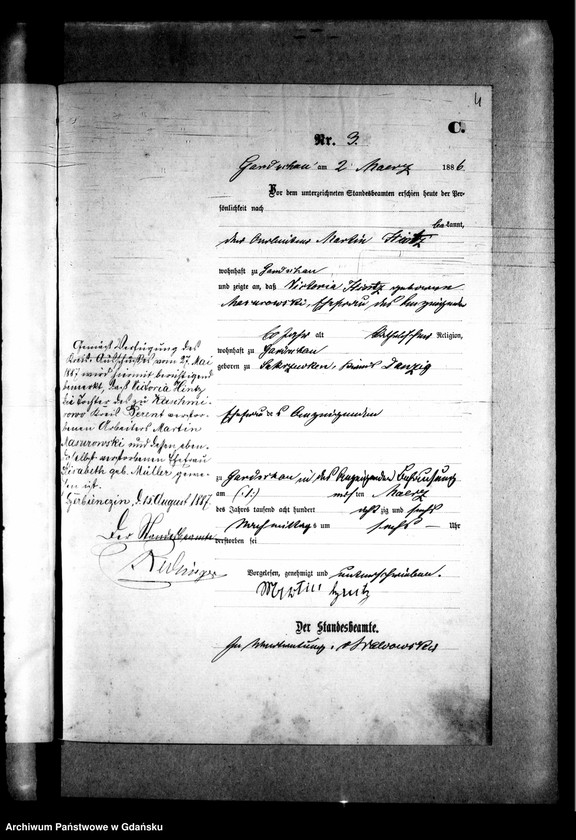 4
C.
Nr. 3.
Gardschau am 2 Maerz 1886
Vor dem unterzeichneten Standesbeamten erschien heute der Per-
sönlichkeit nach
bekannt,
der Martin Hintz
wohnhaft zu Gardschau
und zeigte an, daß Victoria Hintz geborene
Masurowski, Ehefrau des Anzeigenden
60 Jahr alt Katholischer Religion,
wohnhaft zu Gardschau
geboren zu Kreis Danzig
Ehefrau des Anzeigenden
zu Gardschau in des Anzeigenden Behausung
am ten Maerz
des Jahres tausend acht hundert achtzig und sechs
Nachmittags um sechs Uhr
verstorben sei
Vorgelesen, genehmigt und unterschrieben.
Martin Hintz
Der Standesbeamte.
In Vertretung:
Gemäß Verfügung des
Kreis-Ausschußes vom 27. Mai
1887 wird hiermit berichtigend
bemerkt, daß Victoria Hintz
die Tochter des zu
Kreis Berent verstor-
benen Arbeiters Martin
Masurowski und dessen eben-
daselbst verstorbenen Ehefrau
Elisabeth geb. Müller gewe-
sen ist.
d. 15 August 1887.
Der Standesbeamte
Archiwum Państwowe w Gdańsku